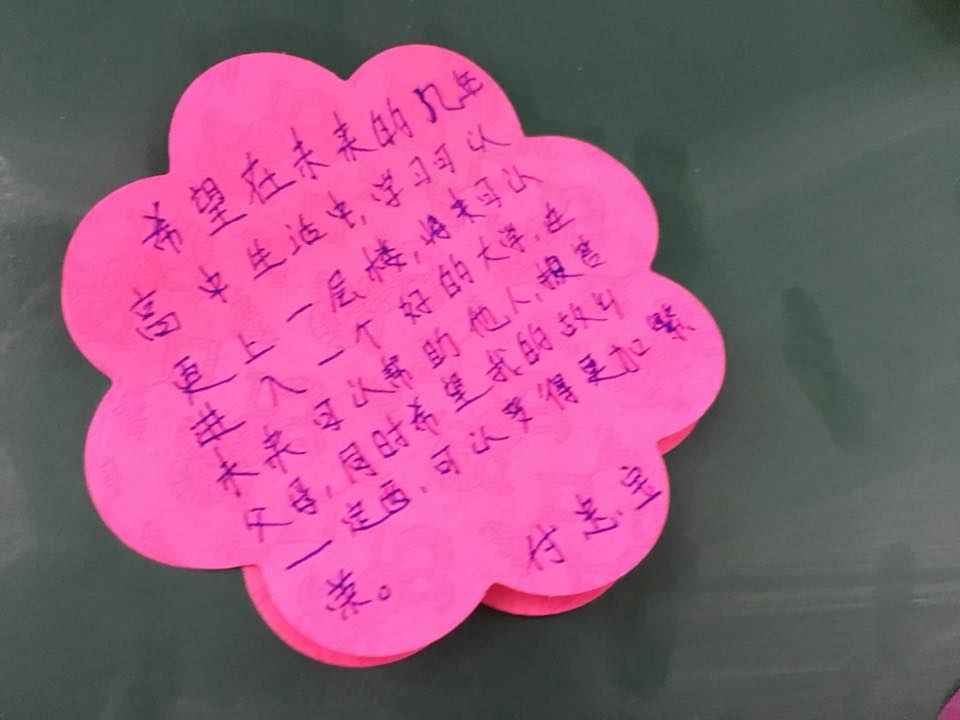 希望在未来的几年
高中生活中,学习可以
更上一层楼,将来可以
进入一个好的大学,在
未来可以帮助他人,报答
父母,同时希望我的故乡
一定西,可以变得更加繁
荣。
付志宝